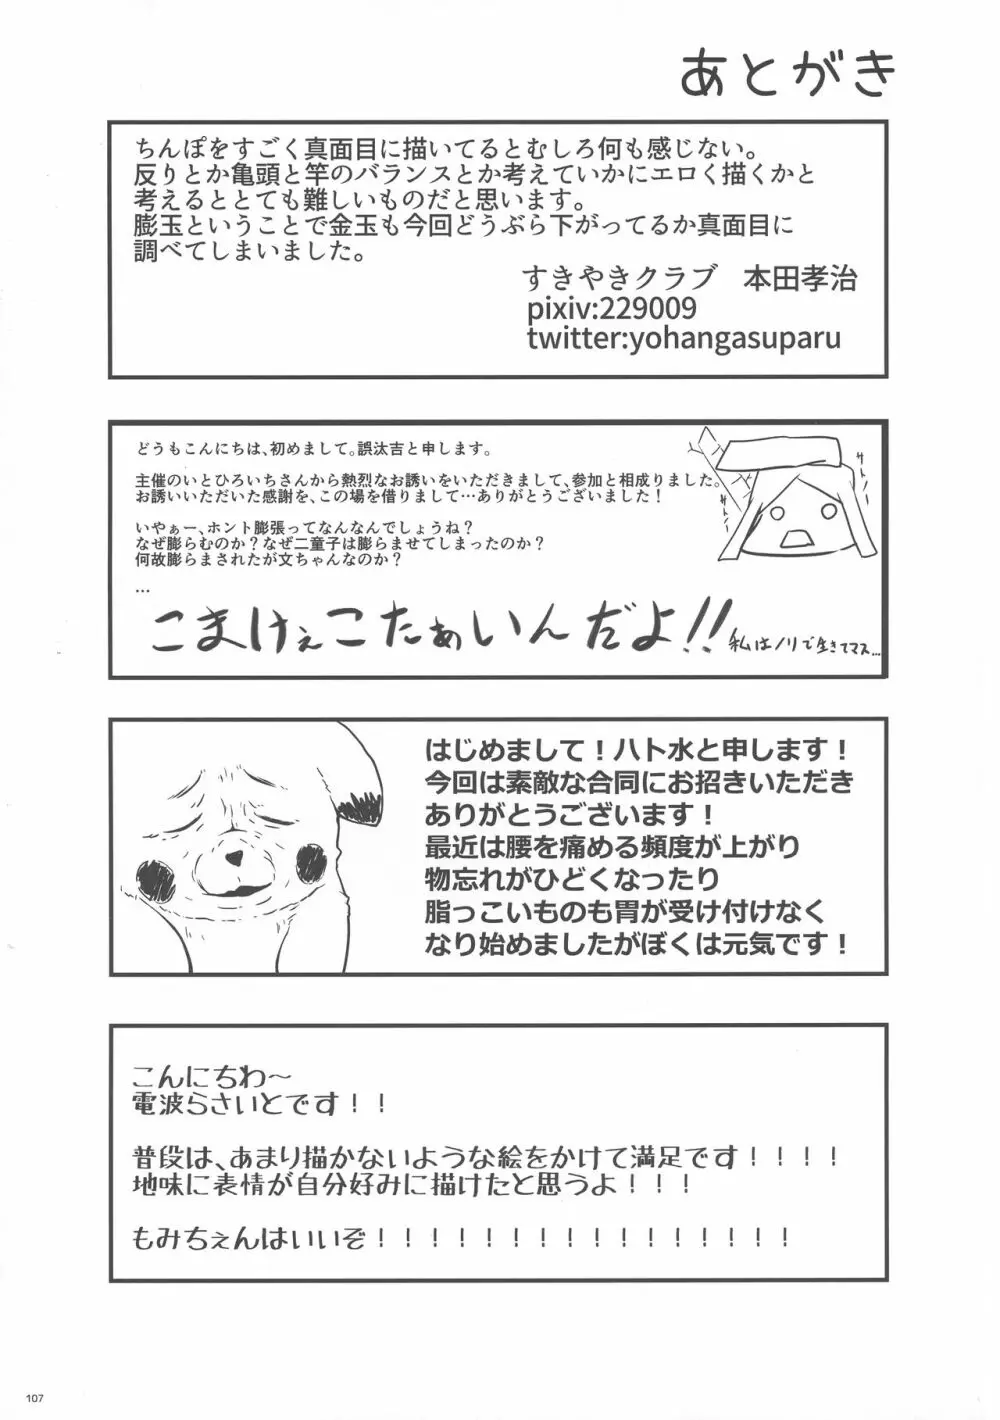 あとがき
ちんぽをすごく真面目に描いてるとむしろ何も感じない。
反りとか亀頭と竿のバランスとか考えていかにエロく描くかと
考えるととても難しいものだと思います。
膨玉ということで金玉も今回どうぶら下がってるか真面目に
調べてしまいました。
すきやきクラブ　本田孝治
pixiv:229009
twitter:yohangasuparu
どうもこんにちは、初めまして。誤汰吉と申します。
主催のいとひろいちさんから熱烈なお誘いをいただきまして、参加と相成りました。
お誘いいただいた感謝を、この場を借りまして…ありがとうございました！
いやぁー、ホント膨張ってなんなんでしょうね？
なぜ膨らむのか？なぜ二童子は膨らませてしまったのか？
何故膨らまされたが文ちゃんなのか？
…
こまけぇこたぁいんだよ!!
私はノリで生きてマス…
サトリ～ン
サトリ～ン
はじめまして！ハト水と申します！
今回は素敵な合同にお招きいただき
ありがとうございます！
最近は腰を痛める頻度が上がり
物忘れがひどくなったり
脂っこいものも胃が受け付けなく
なり始めましたがぼくは元気です！
こんにちわ～
電波らさいとです！！
普段は、あまり描かないような絵をかけて満足です！！！！
地味に表情が自分好みに描けたと思うよ！！！
もみちぇんはいいぞ！！！！！！！！！！！！！！！！
107